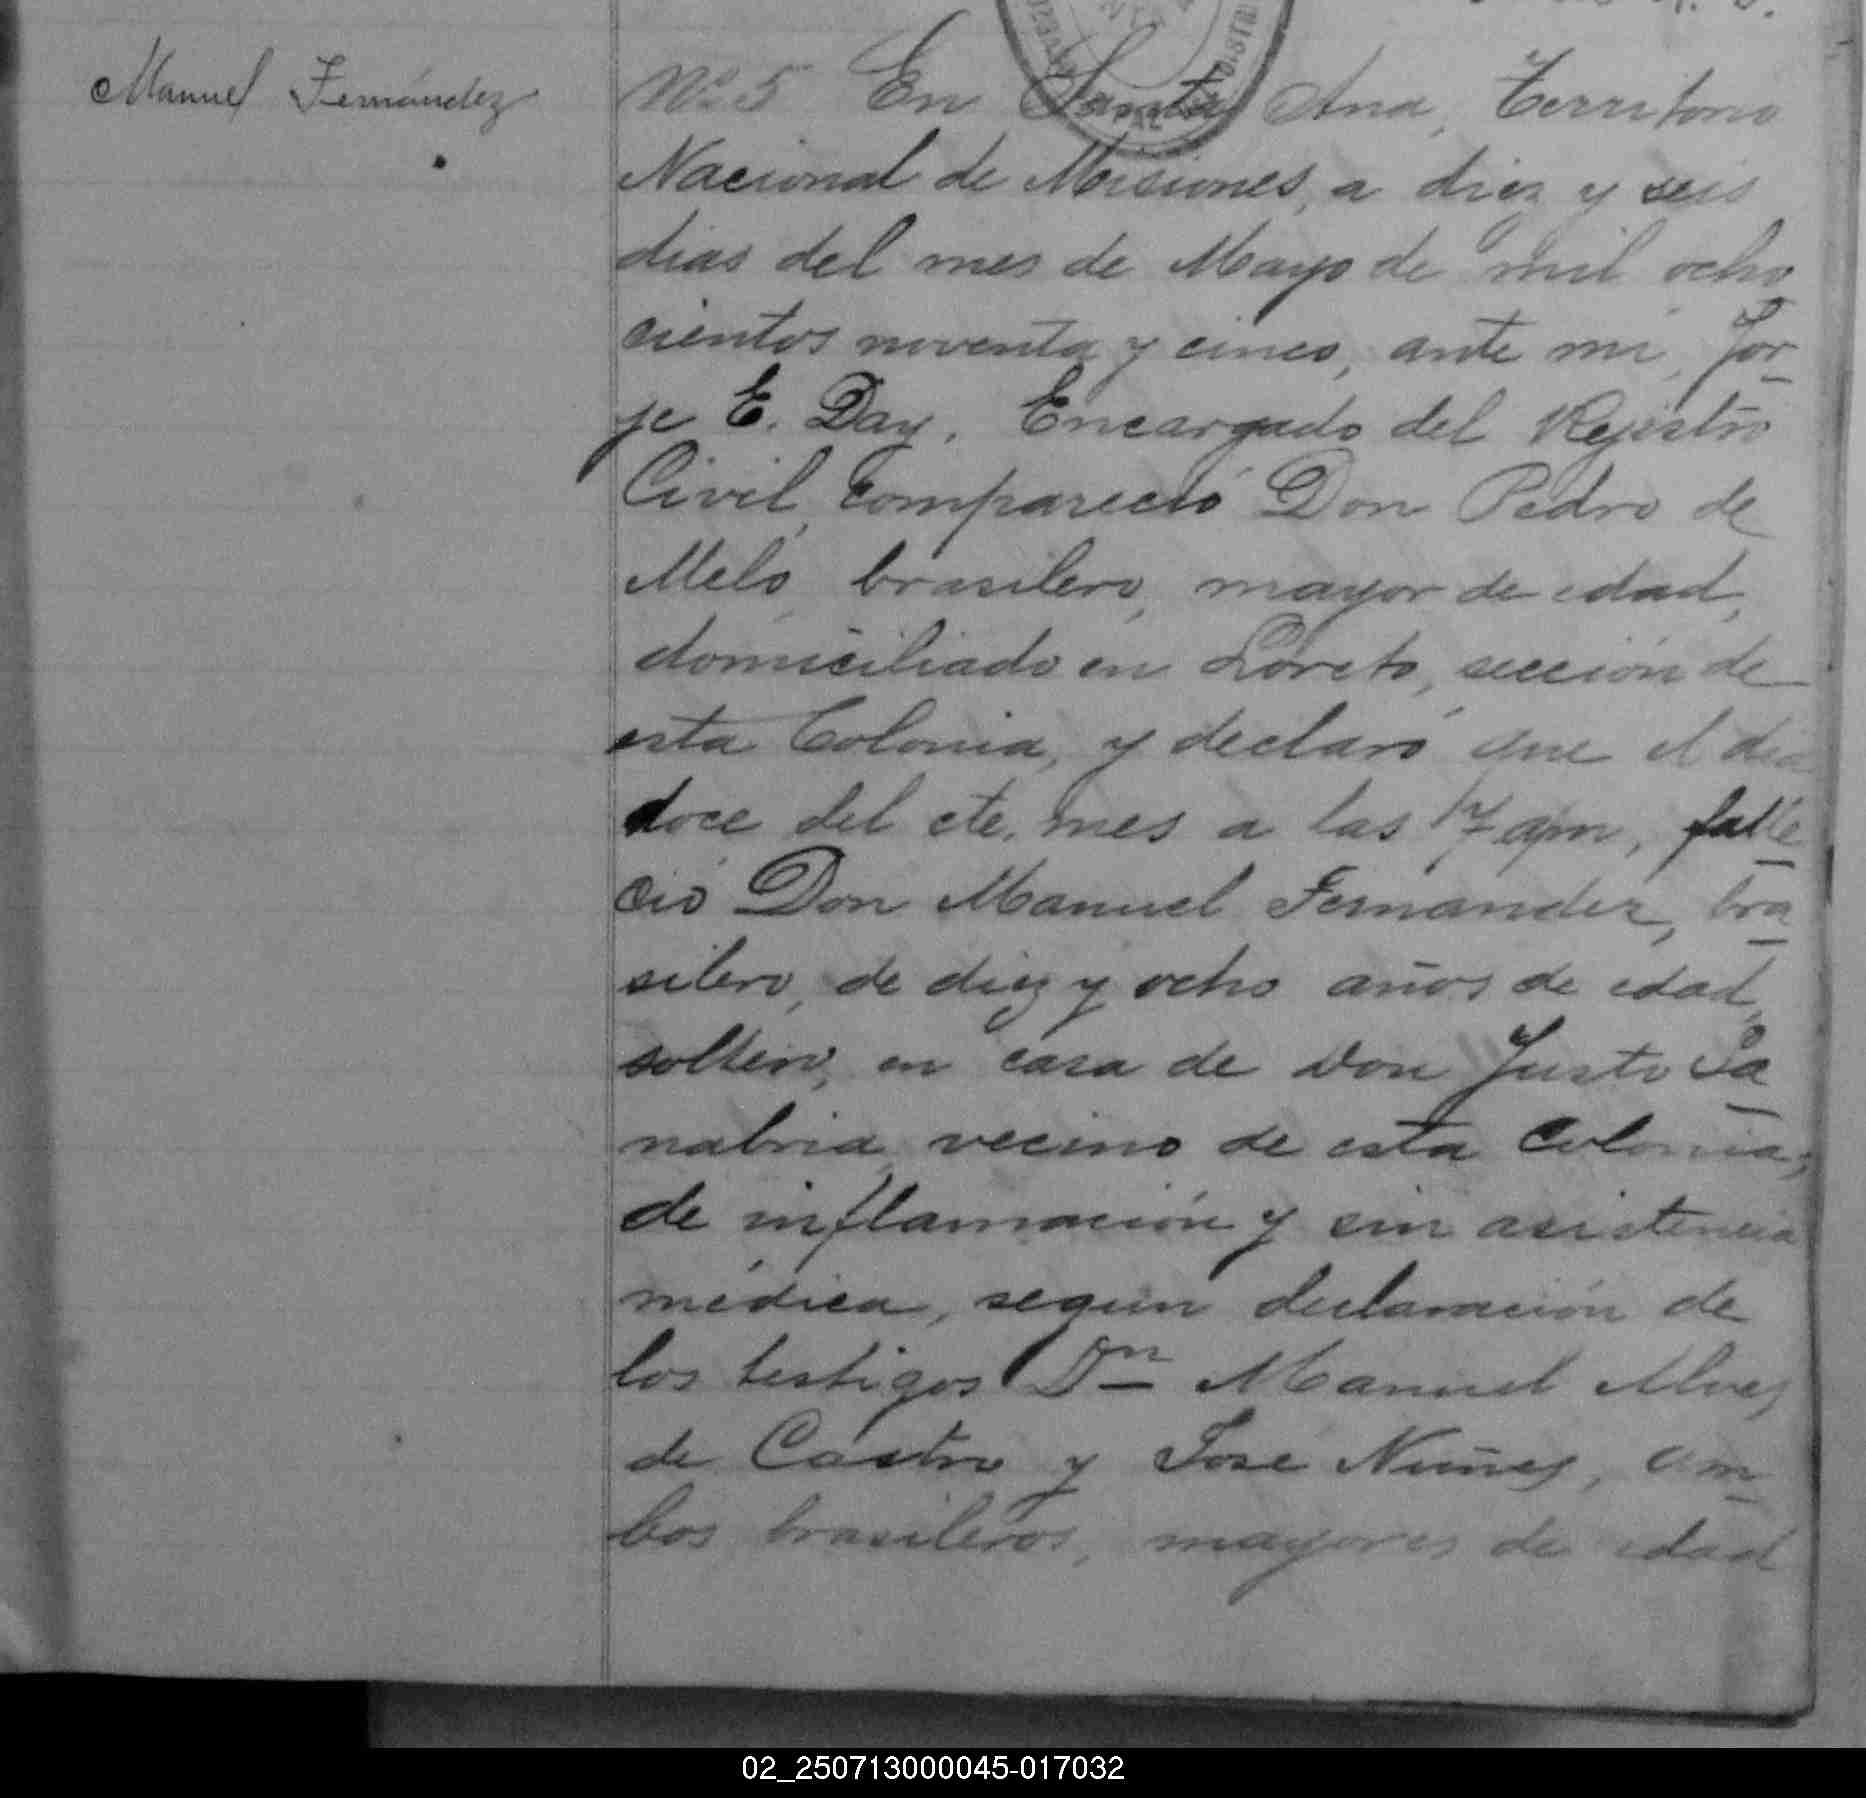 Manuel Fernández
No 5 En Santa Ana, Territorio
Nacional de Misiones, a diez y seis
dias del mes de Mayo de mil ocho
cientos noventa y cinco, ante mi, Jor-
je E. Day, Encargado del Rejistro
Civil, compareció Don Pedro de
Melo, brasilero, mayor de edad,
domiciliado en Loreto, sección de
esta Colonia, y declaró que el dia
doce del cte. mes a las 7 falle-
ció Don Manuel Fernandez, bra-
silero, de diez y ocho años de edad,
soltero, en casa de Don Justo Sa-
nabria, vecino de esta Colonia,
de inflamación y sin asistencia
médica, segun declaración de
los testigos Dn Manuel Alves
de Castro y José Nuñes, am-
bos brasileros, mayores de edad
02_250713000045-017032